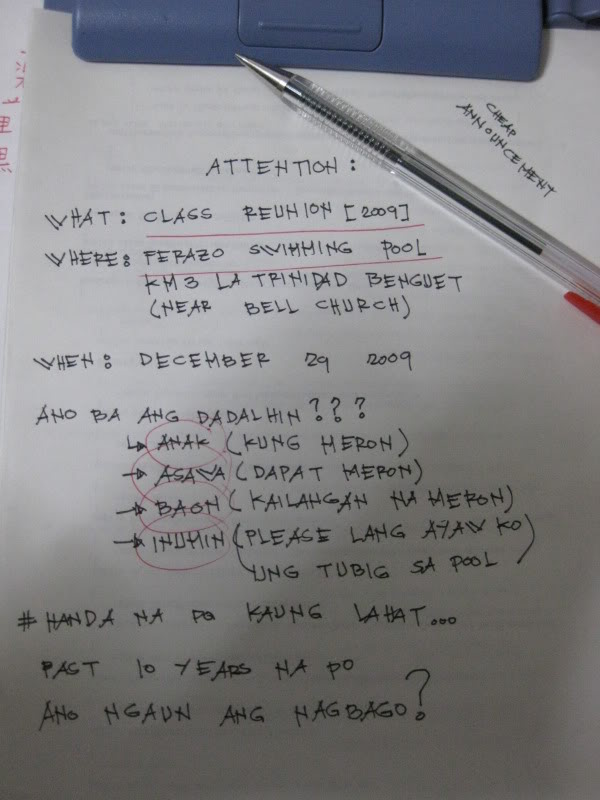 CHEAP
ANNOUNCEMENT
ATTENTION:
WHAT: CLASS REUNION [2009]
WHERE: FERAZO SWIMMING POOL
KM3 LA TRINIDAD BENGUET
(NEAR BELL CHURCH)
WHEN: DECEMBER 29 2009
ANO BA ANG DADALHIN???
↳ ANAK (KUNG MERON)
→ ASAWA (DAPAT MERON)
→ BAON (KAILANGAN NA MERON)
→ INUMIN (PLEASE LANG AYAW KO
UNG TUBIG SA POOL)
# HANDA NA PO KAUNG LAHAT...
PAST 10 YEARS NA PO
ANO NGAUN ANG NAGBAGO?